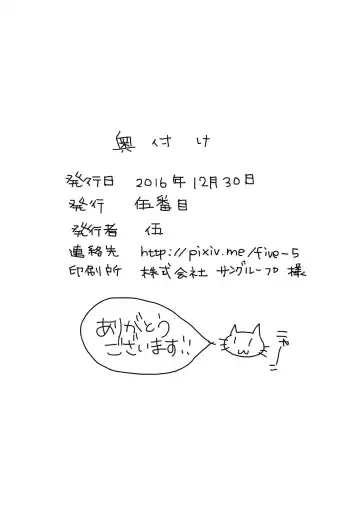 奥付け
発行日 2016年12月30日
発行 伍番目
発行者 伍
連絡先 http://pixiv.me/five-5
印刷所 株式会社 サングループ 様
ありがとう
ございます!!
ニャー